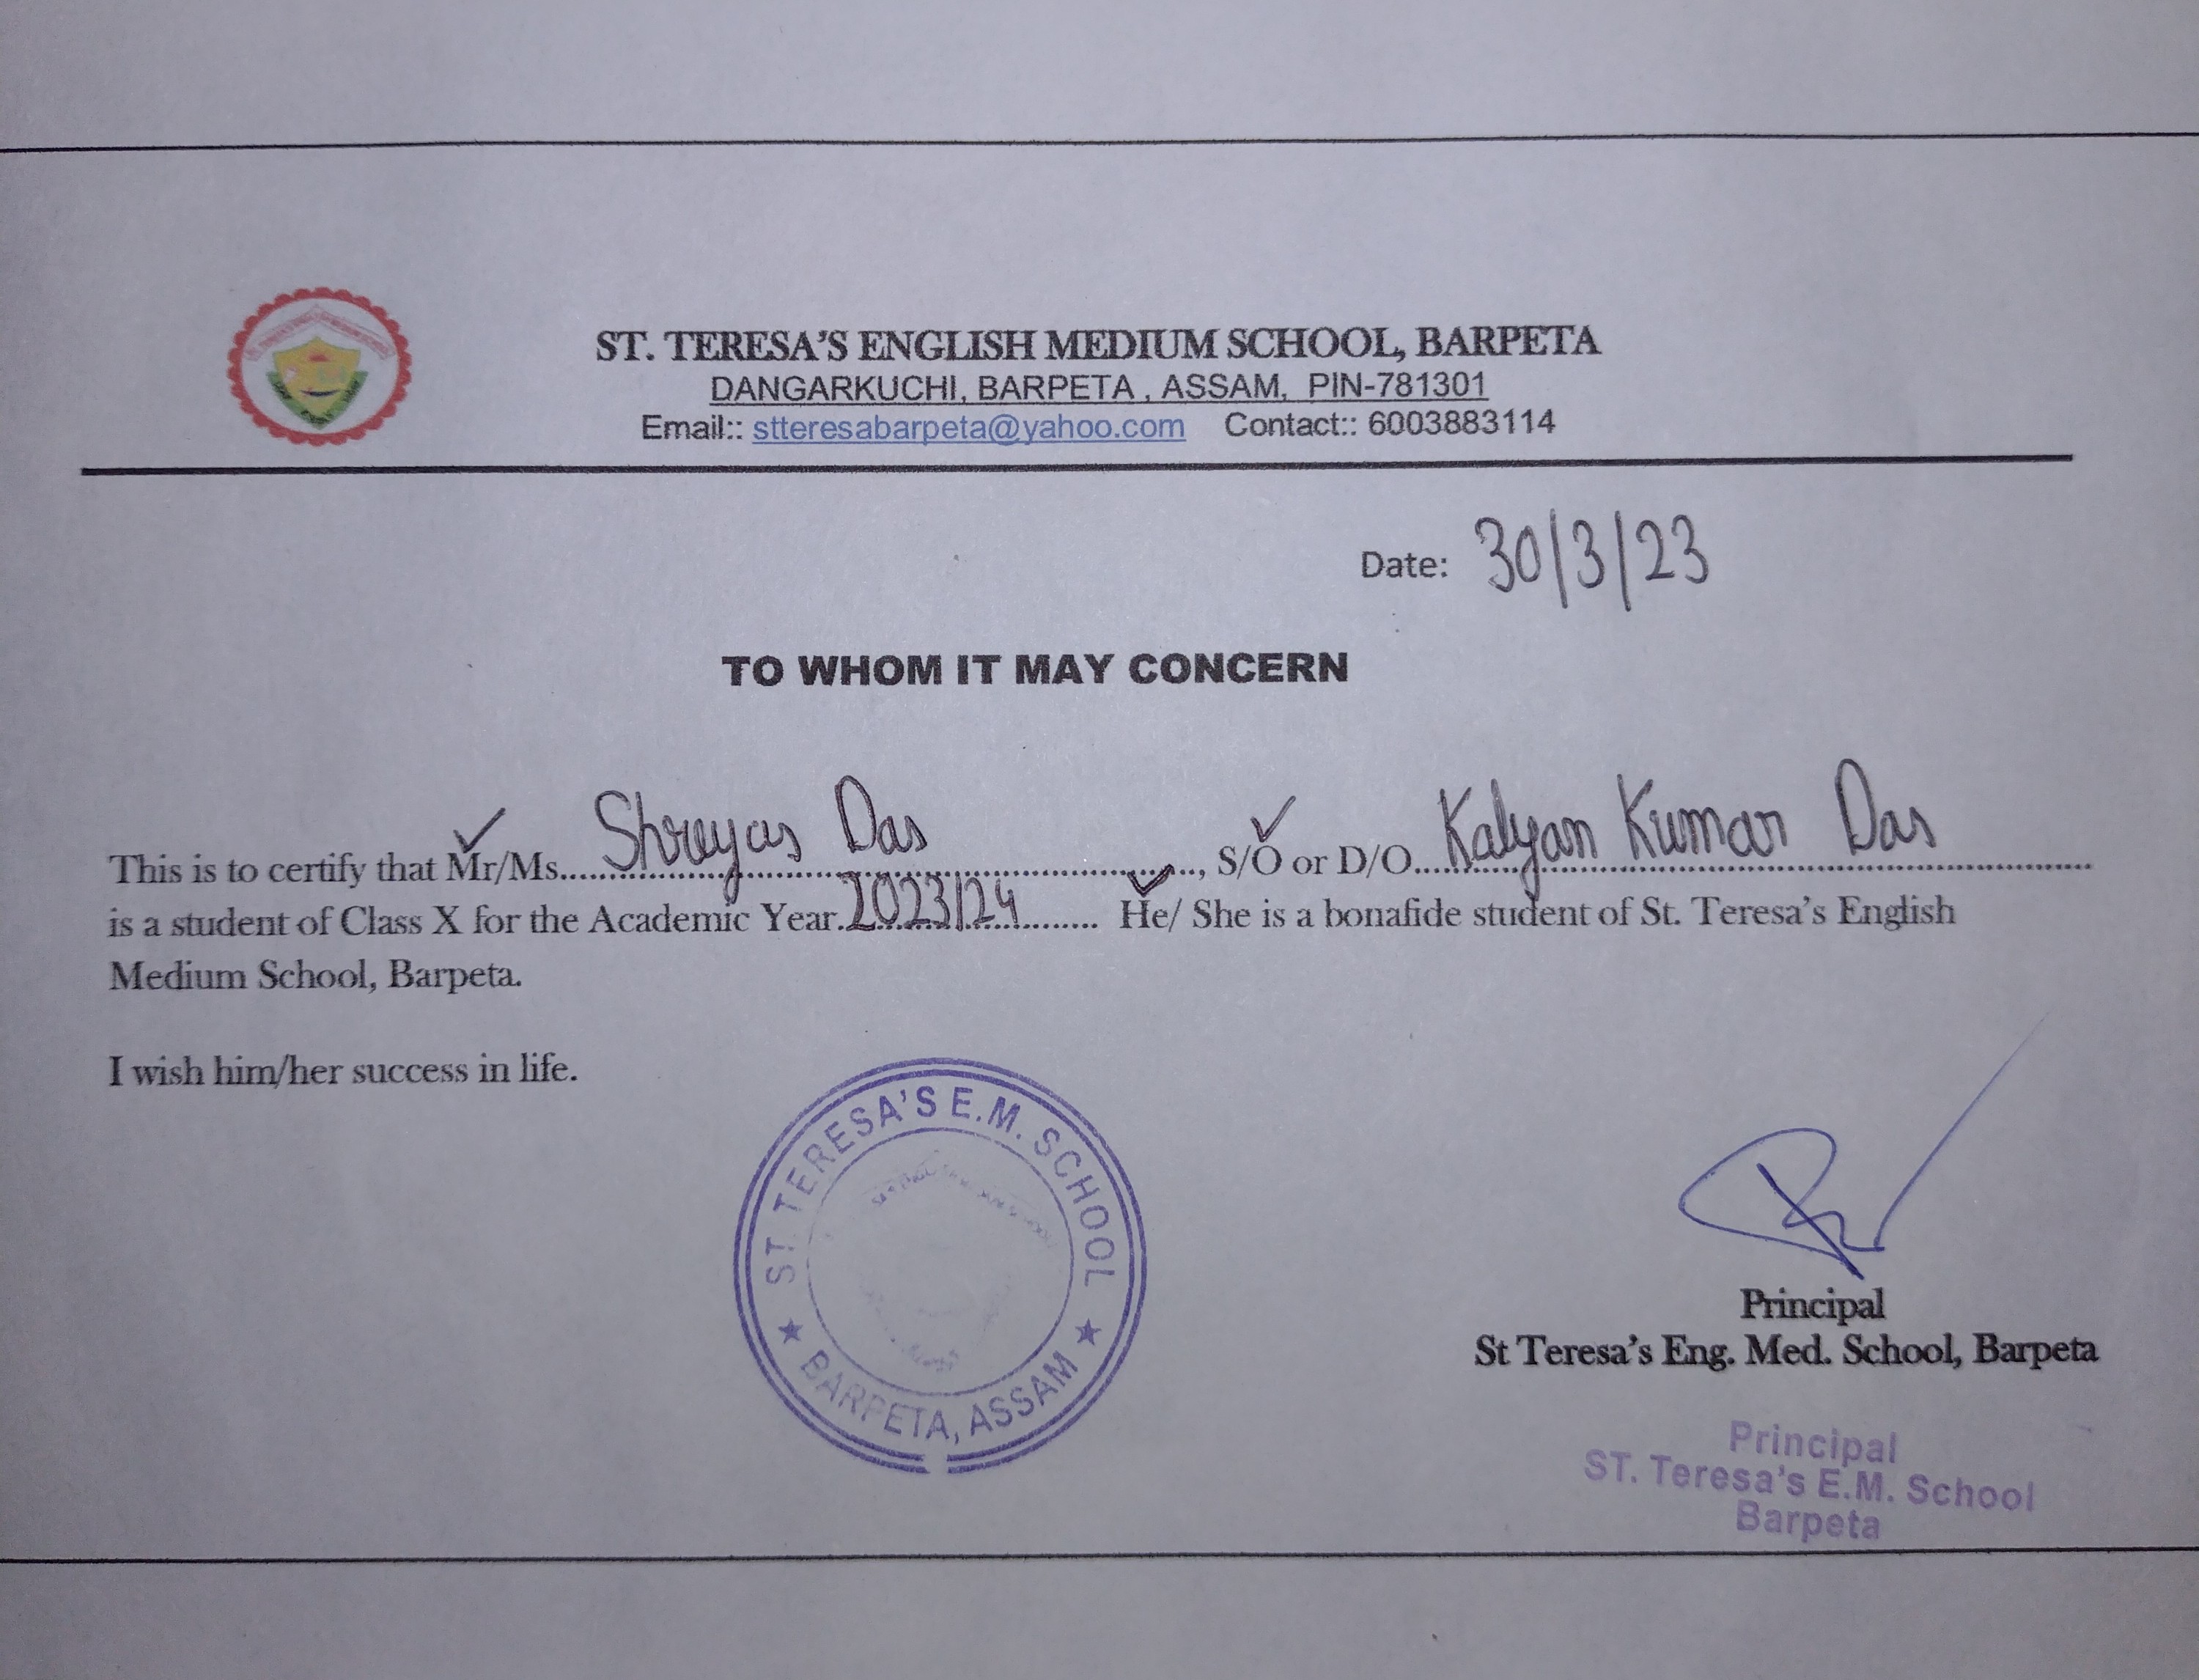 ST. TERESA'S ENGLISH MEDIUM SCHOOL, BARPETA
DANGARKUCHI, BARPETA , ASSAM, PIN-781301
Email:: stteresabarpeta@yahoo.com Contact:: 6003883114
Date: 30/3/23
TO WHOM IT MAY CONCERN
This is to certify that Mr/Ms.....Shreyas Das....., S/O or D/O.....Kalyan Kumar Das.....
is a student of Class X for the Academic Year.....2023/24..... He/ She is a bonafide student of St. Teresa's English
Medium School, Barpeta.
I wish him/her success in life.
ST. TERESA'S E.M. SCHOOL
★ BARPETA, ASSAM ★
Principal
St Teresa's Eng. Med. School, Barpeta
Principal
ST. Teresa's E.M. School
Barpeta